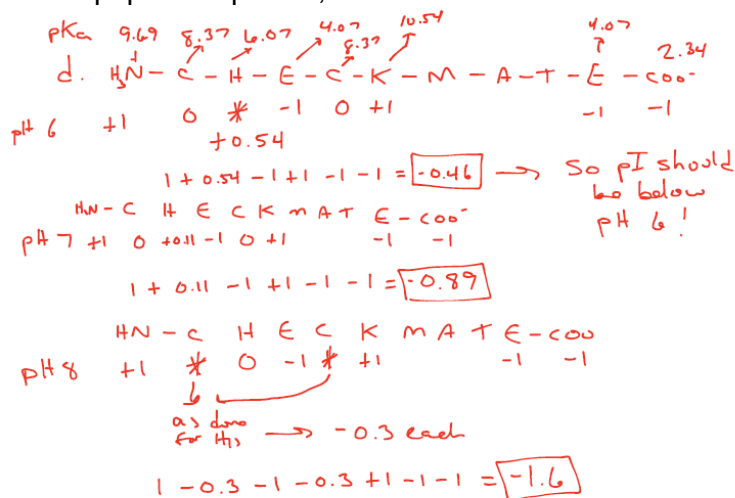 pKa 9.69 8.37 6.07 4.07 8.37 10.54 4.07 2.34
d. H₃N⁺ - C - H - E - C - K - M - A - T - E - COO⁻
pH 6 +1 0 * -1 0 +1 -1 -1
+0.54
1 + 0.54 - 1 + 1 - 1 - 1 = -0.46 → So pI should
be below
pH 6!
H₂N - C H E C K M A T E - COO⁻
pH 7 +1 0 +0.11 -1 0 +1 -1 -1
1 + 0.11 - 1 + 1 - 1 - 1 = -0.89
HN - C H E C K M A T E - COO
pH 8 +1 * 0 -1 * +1 -1 -1
as done
for His → -0.3 each
1 - 0.3 - 1 - 0.3 + 1 - 1 - 1 = -1.6